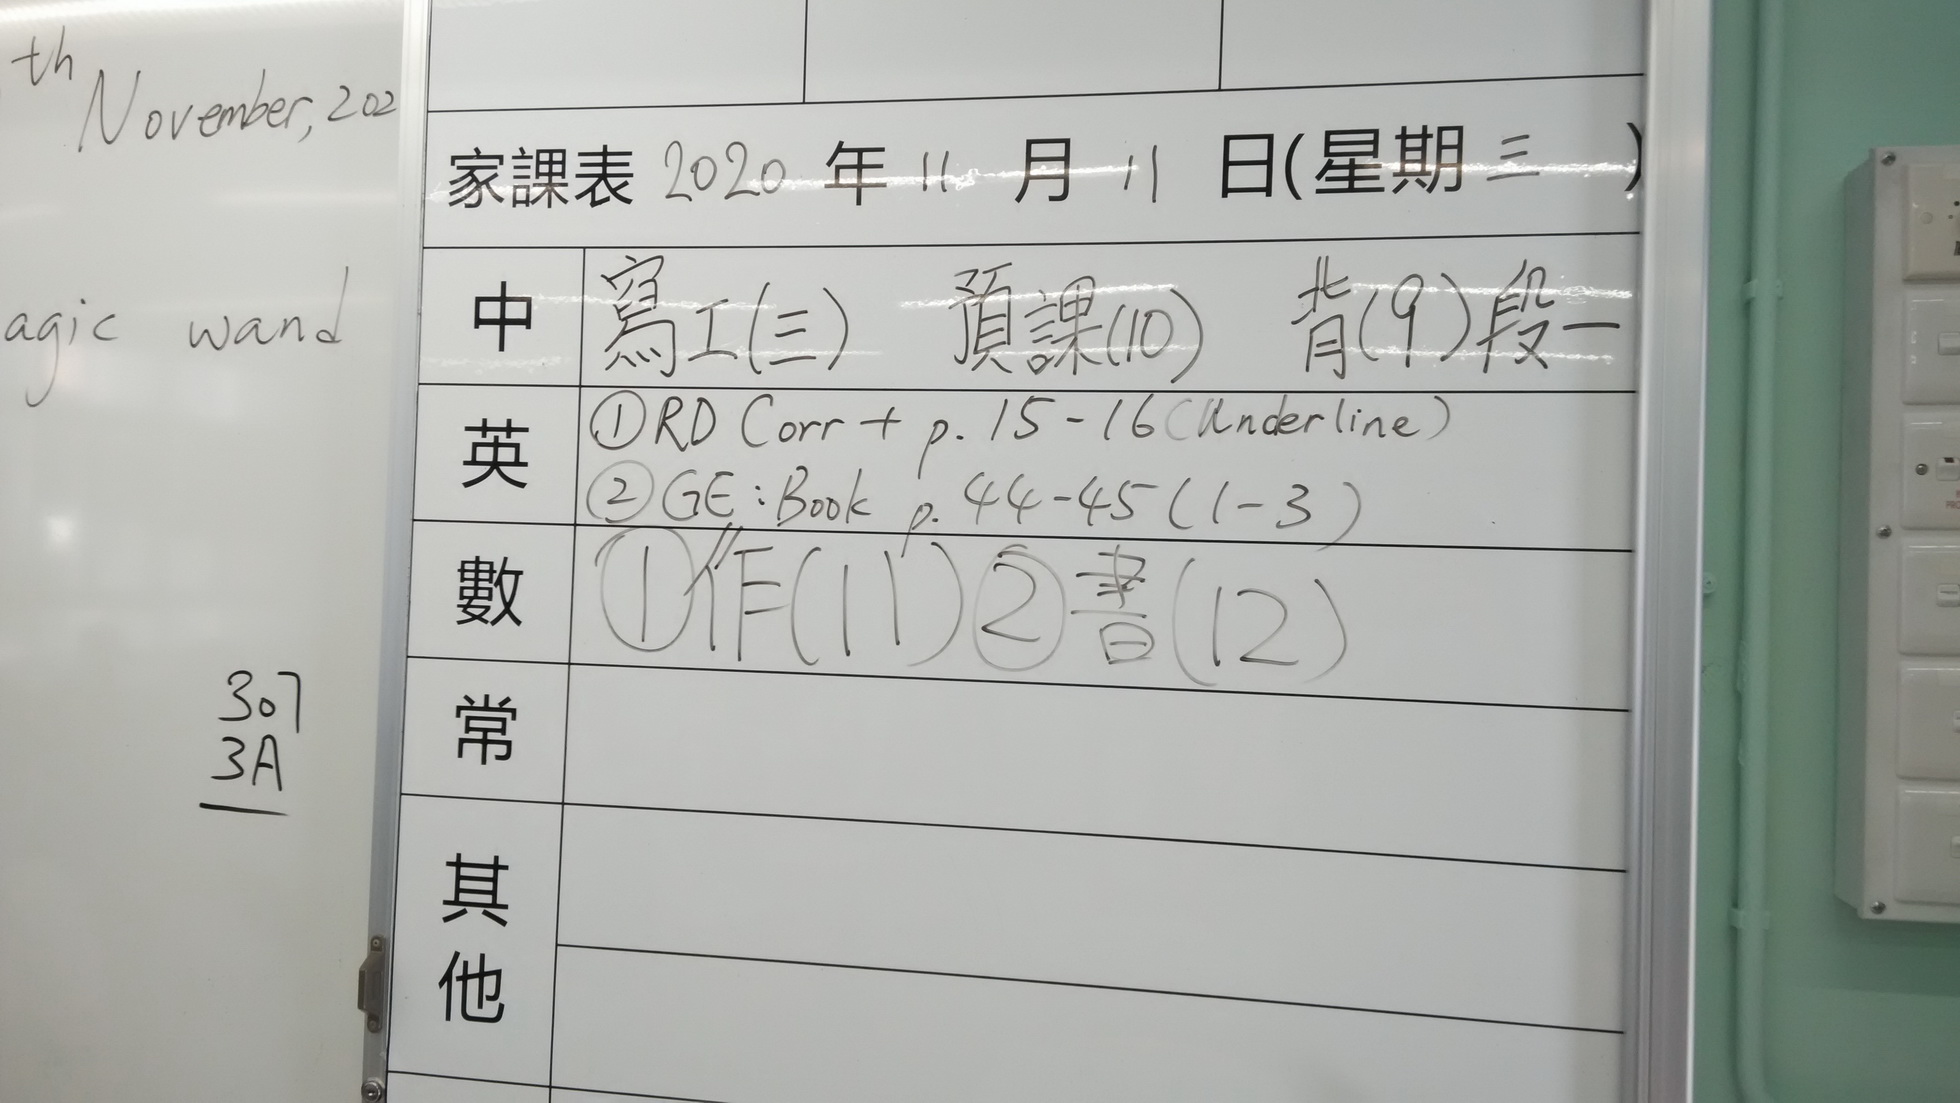 th
November, 202
agic wand
307
3A
家課表 2020 年 11 月 11 日(星期 三 )
中 寫工(三) 預課(10) 背(9)段一
英 ①RD Corr + p. 15-16 (Underline)
②GE: Book p. 44-45 (1-3)
數 ①作(11) ②書(12)
常
其
他